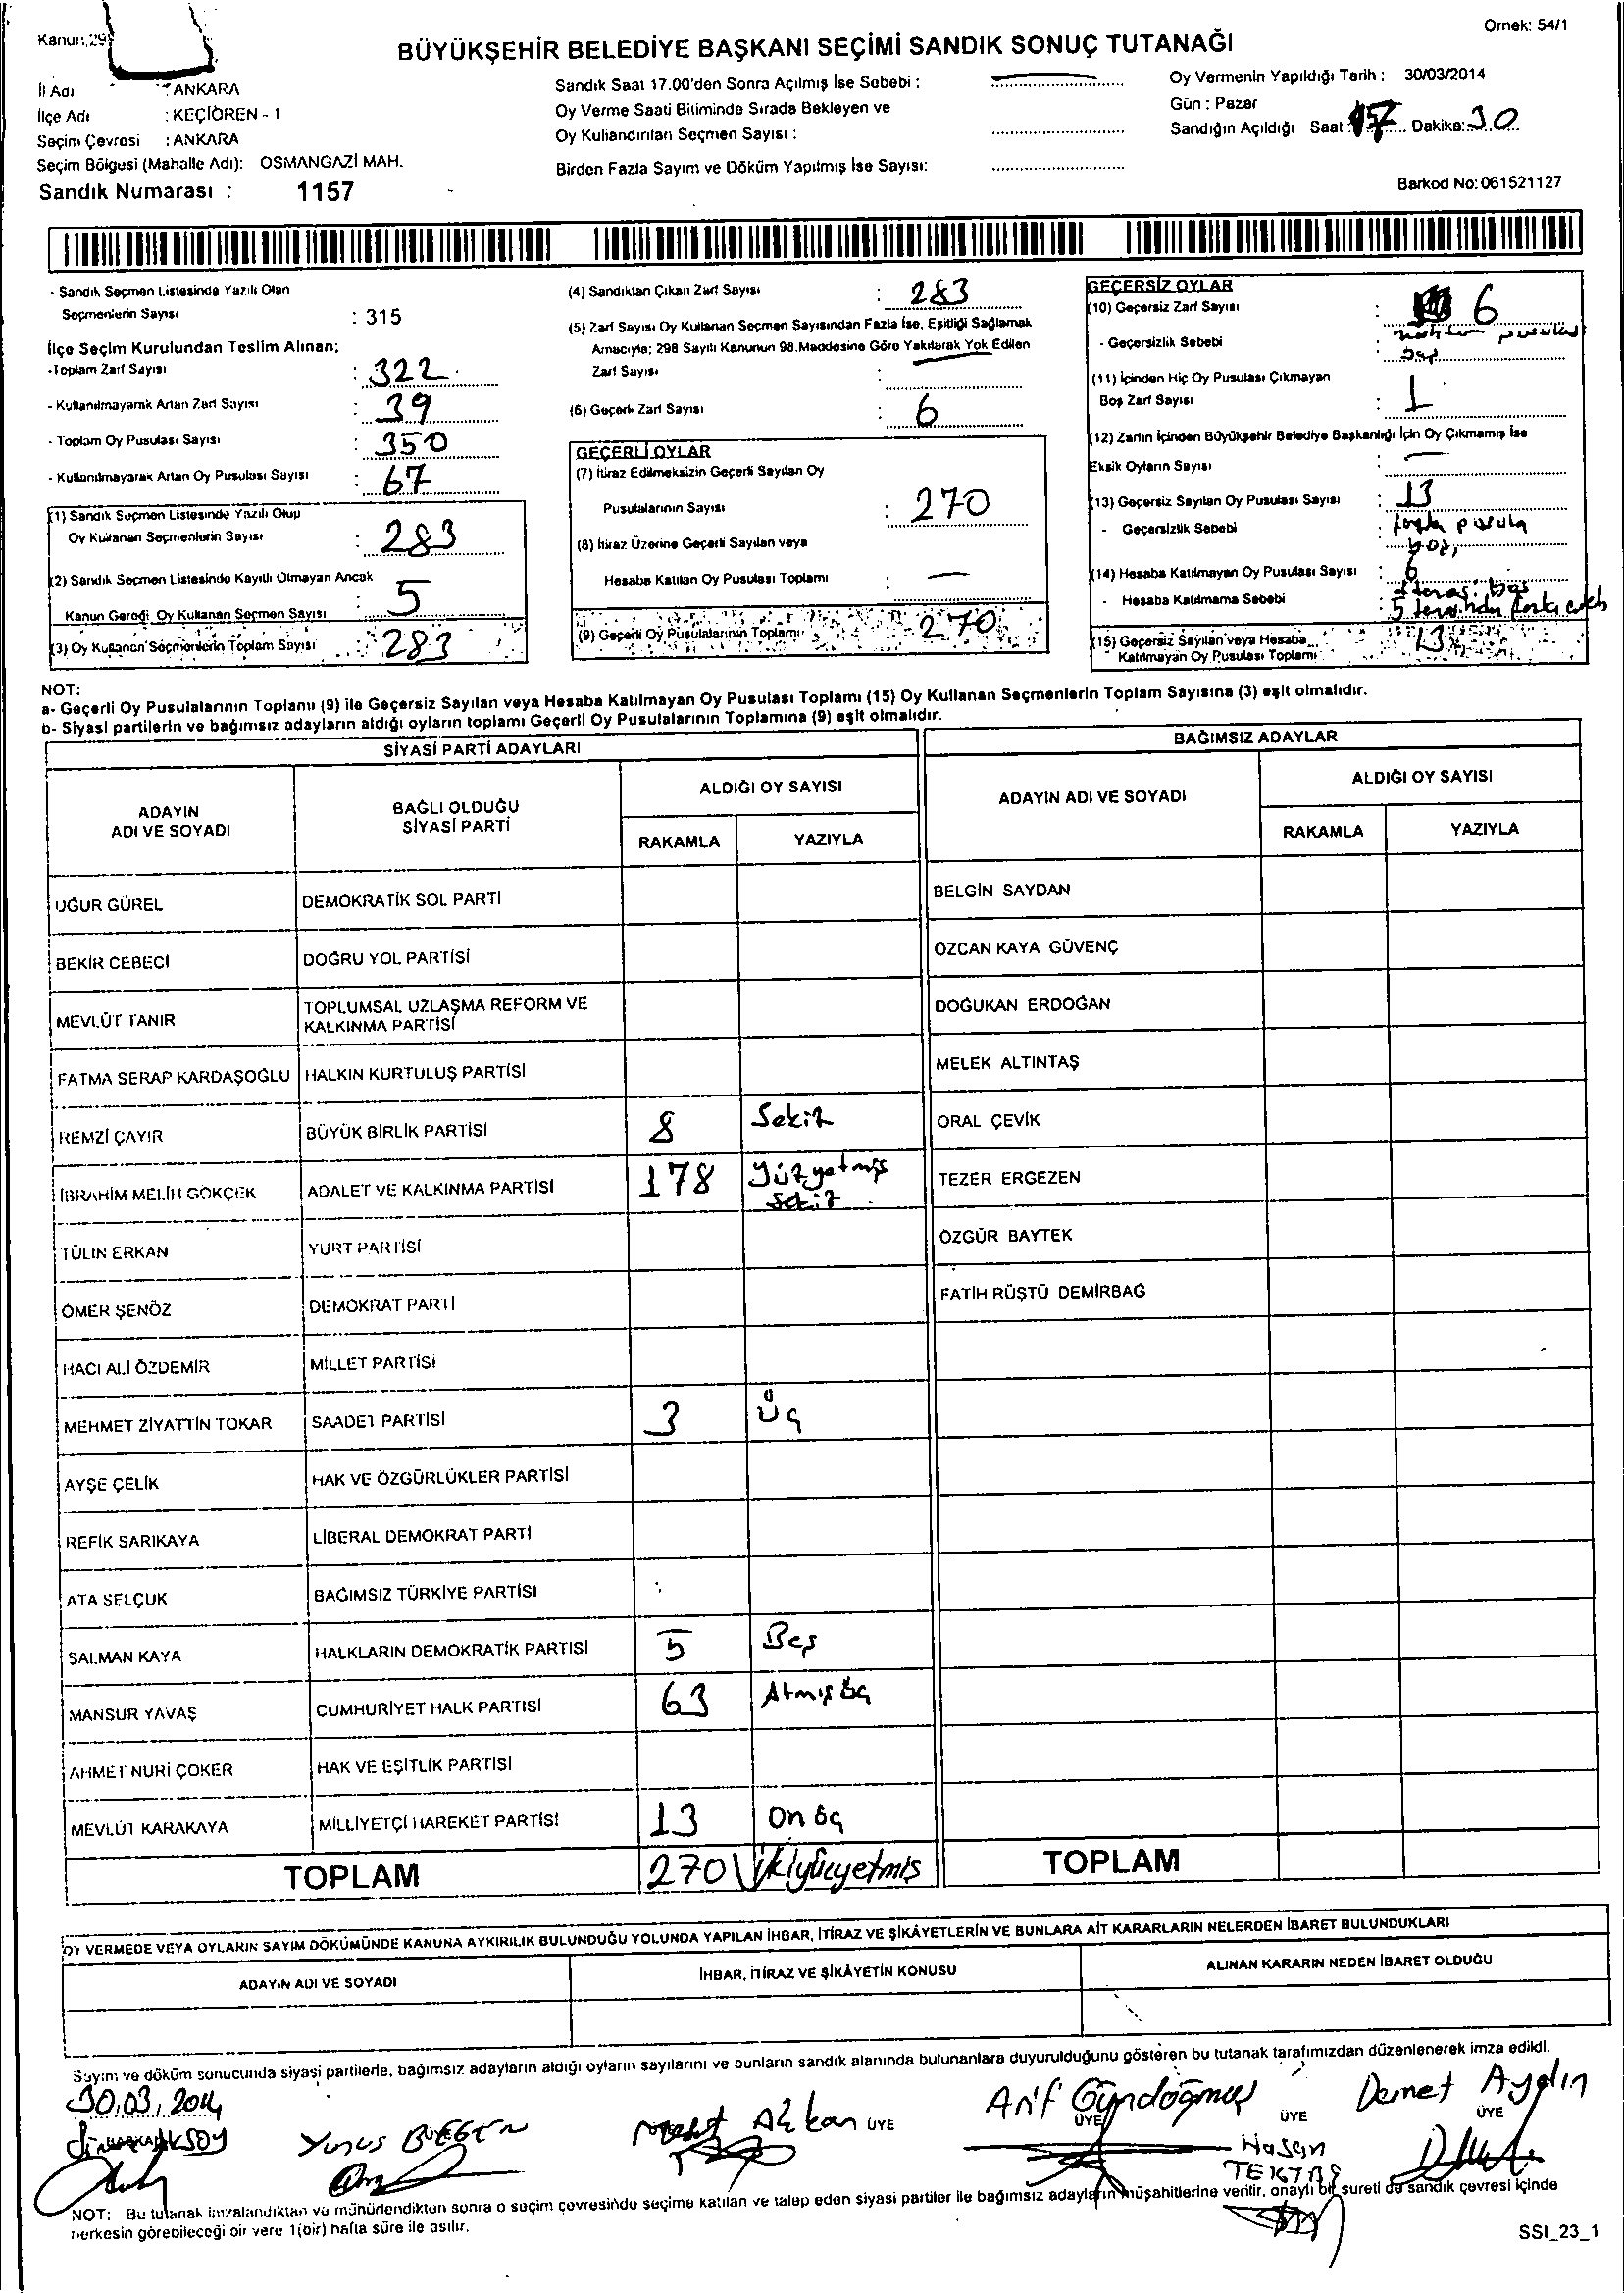 Kanun:29
Örnek: 54/1
BÜYÜKŞEHİR BELEDİYE BAŞKANI SEÇİMİ SANDIK SONUÇ TUTANAĞI
İl Adı : ANKARA
İlçe Adı : KEÇİÖREN - 1
Seçim Çevresi : ANKARA
Seçim Bölgesi (Mahalle Adı): OSMANGAZİ MAH.
Sandık Numarası : 1157
Sandık Saat 17.00'den Sonra Açılmış İse Sebebi :
Oy Verme Saati Bitiminde Sırada Bekleyen ve
Oy Kullandırılan Seçmen Sayısı :
Birden Fazla Sayım ve Döküm Yapılmış İse Sayısı:
Oy Vermenin Yapıldığı Tarih : 30/03/2014
Gün : Pazar
Sandığın Açıldığı Saat 17 Dakika: 30
Barkod No: 061521127
- Sandık Seçmen Listesinde Yazılı Olan
Seçmenlerin Sayısı : 315
İlçe Seçim Kurulundan Teslim Alınan;
-Toplam Zarf Sayısı : 322
- Kullanılmayarak Artan Zarf Sayısı : 39
- Toplam Oy Pusulası Sayısı : 350
- Kullanılmayarak Artan Oy Pusulası Sayısı : 67
(1) Sandık Seçmen Listesinde Yazılı Olup
Oy Kullanan Seçmenlerin Sayısı : 283
(2) Sandık Seçmen Listesinde Kayıtlı Olmayan Ancak
Kanun Gereği Oy Kullanan Seçmen Sayısı : 5
(3) Oy Kullanan Seçmenlerin Toplam Sayısı : 283
(4) Sandıktan Çıkan Zarf Sayısı : 283
(5) Zarf Sayısı Oy Kullanan Seçmen Sayısından Fazla İse, Eşitliği Sağlamak
Amacıyla; 298 Sayılı Kanunun 98.Maddesine Göre Yakılarak Yok Edilen
Zarf Sayısı :
(6) Geçerli Zarf Sayısı : 6
GEÇERLİ OYLAR
(7) İtiraz Edilmeksizin Geçerli Sayılan Oy
Pusulalarının Sayısı : 270
(8) İtiraz Üzerine Geçerli Sayılan veya
Hesaba Katılan Oy Pusulası Toplamı : —
(9) Geçerli Oy Pusulalarının Toplamı : 270
GEÇERSİZ OYLAR
(10) Geçersiz Zarf Sayısı : 6
- Geçersizlik Sebebi :
(11) İçinden Hiç Oy Pusulası Çıkmayan
Boş Zarf Sayısı : 1
(12) Zarfın İçinden Büyükşehir Belediye Başkanlığı İçin Oy Çıkmamış İse
Eksik Oyların Sayısı : —
(13) Geçersiz Sayılan Oy Pusulası Sayısı : 13
- Geçersizlik Sebebi : fazla pusula
(14) Hesaba Katılmayan Oy Pusulası Sayısı : 6
- Hesaba Katılmama Sebebi :
(15) Geçersiz Sayılan veya Hesaba
Katılmayan Oy Pusulası Toplamı : 13
NOT:
a- Geçerli Oy Pusulalarının Toplamı (9) ile Geçersiz Sayılan veya Hesaba Katılmayan Oy Pusulası Toplamı (15) Oy Kullanan Seçmenlerin Toplam Sayısına (3) eşit olmalıdır.
b- Siyasi partilerin ve bağımsız adayların aldığı oyların toplamı Geçerli Oy Pusulalarının Toplamına (9) eşit olmalıdır.
SİYASİ PARTİ ADAYLARI
ADAYIN ADI VE SOYADI
BAĞLI OLDUĞU SİYASİ PARTİ
ALDIĞI OY SAYISI
RAKAMLA YAZIYLA
UĞUR GÜREL DEMOKRATİK SOL PARTİ
BEKİR CEBECİ DOĞRU YOL PARTİSİ
MEVLÜT TANIR TOPLUMSAL UZLAŞMA REFORM VE
KALKINMA PARTİSİ
FATMA SERAP KARDAŞOĞLU HALKIN KURTULUŞ PARTİSİ
REMZİ ÇAYIR BÜYÜK BİRLİK PARTİSİ 8 Sekiz
İBRAHİM MELİH GÖKÇEK ADALET VE KALKINMA PARTİSİ 178 Yüzyetmiş
sekiz
TÜLİN ERKAN YURT PARTİSİ
ÖMER ŞENÖZ DEMOKRAT PARTİ
HACI ALİ ÖZDEMİR MİLLET PARTİSİ
MEHMET ZİYATTİN TOKAR SAADET PARTİSİ 3 Üç
AYŞE ÇELİK HAK VE ÖZGÜRLÜKLER PARTİSİ
REFİK SARIKAYA LİBERAL DEMOKRAT PARTİ
ATA SELÇUK BAĞIMSIZ TÜRKİYE PARTİSİ
SALMAN KAYA HALKLARIN DEMOKRATİK PARTİSİ 5 Beş
MANSUR YAVAŞ CUMHURİYET HALK PARTİSİ 63 Atmış üç
AHMET NURİ ÇOKER HAK VE EŞİTLİK PARTİSİ
MEVLÜT KARAKAYA MİLLİYETÇİ HAREKET PARTİSİ 13 On üç
TOPLAM 270 ikiyüzyetmiş
BAĞIMSIZ ADAYLAR
ADAYIN ADI VE SOYADI
ALDIĞI OY SAYISI
RAKAMLA YAZIYLA
BELGİN SAYDAN
ÖZCAN KAYA GÜVENÇ
DOĞUKAN ERDOĞAN
MELEK ALTINTAŞ
ORAL ÇEVİK
TEZER ERGEZEN
ÖZGÜR BAYTEK
FATİH RÜŞTÜ DEMİRBAĞ
TOPLAM
OY VERMEDE VEYA OYLARIN SAYIM DÖKÜMÜNDE KANUNA AYKIRILIK BULUNDUĞU YOLUNDA YAPILAN İHBAR, İTİRAZ VE ŞİKÂYETLERİN VE BUNLARA AİT KARARLARIN NELERDEN İBARET BULUNDUKLARI
ADAYIN ADI VE SOYADI İHBAR, İTİRAZ VE ŞİKÂYETİN KONUSU ALINAN KARARIN NEDEN İBARET OLDUĞU
Sayım ve döküm sonucunda siyasi partilerle, bağımsız adayların aldığı oyların sayılarını ve bunların sandık alanında bulunanlara duyurulduğunu gösteren bu tutanak tarafımızdan düzenlenerek imza edildi.
30.03.2014
BAŞKAN AKSOY Yunus Alkan ÜYE Arif Gündoğmuş ÜYE ÜYE Demet Aydın ÜYE
Hasan
TEKTAŞ
NOT: Bu tutanak imzalandıktan ve mühürlendikten sonra o seçim çevresinde seçime katılan ve talep eden siyasi partiler ile bağımsız adayların müşahitlerine verilir, onaylı bir sureti de sandık çevresi içinde
herkesin görebileceği bir yere 1(bir) hafta süre ile asılır.
SSI_23_1